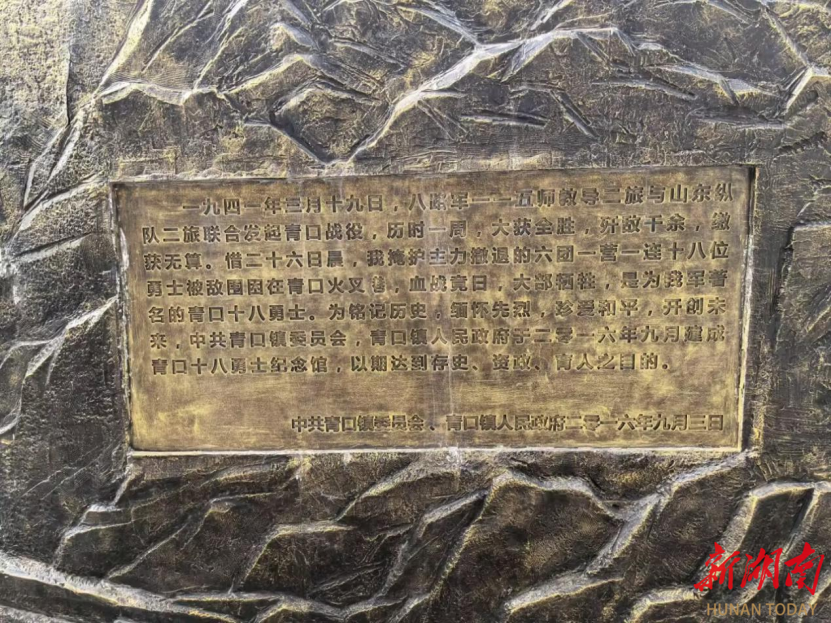 一九四一年三月十九日，八路军一一五师教导二旅与山东纵
队二旅联合发起青口战役，历时一周，大获全胜，歼敌千余，缴
获无算。惜二十六日晨，我掩护主力撤退的六团一营一连十八位
勇士被敌围困在青口火叉巷，血战竟日，大部牺牲，是为我军著
名的青口十八勇士。为铭记历史，缅怀先烈，珍爱和平，开创未
来，中共青口镇委员会，青口镇人民政府于二零一六年九月建成
青口十八勇士纪念馆，以期达到存史、资政、育人之目的。
中共青口镇委员会、青口镇人民政府二零一六年九月三日
新湖南
HUNAN TODAY